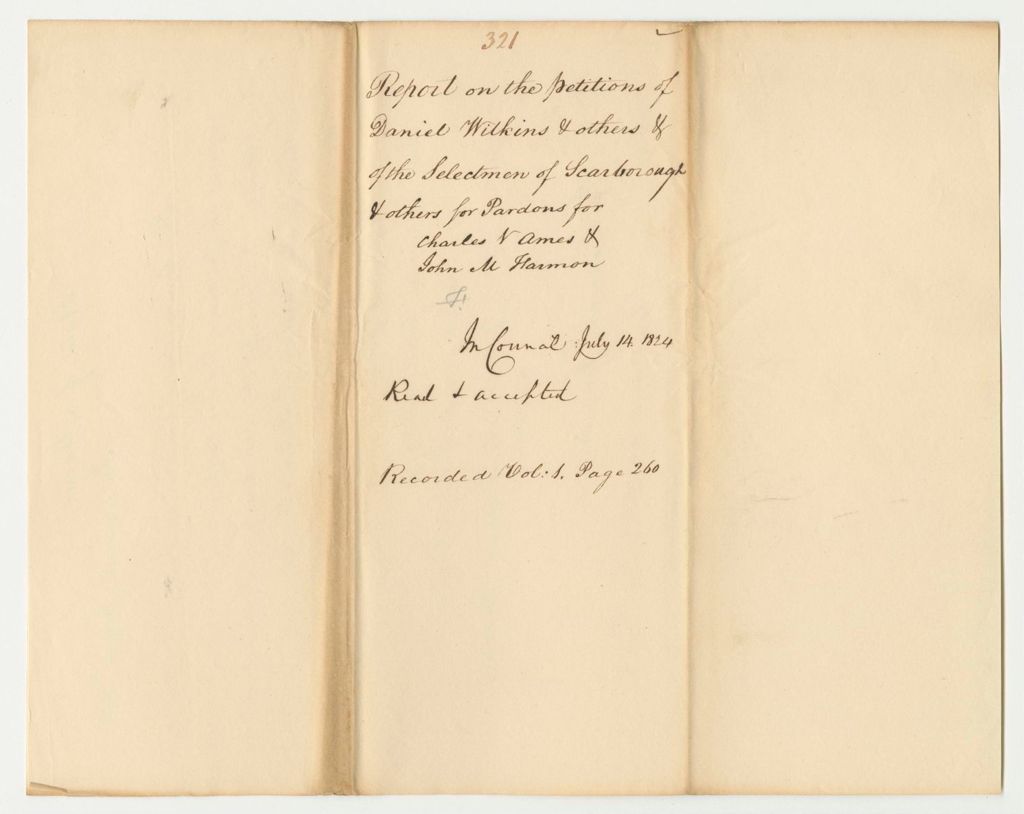 321
Report on the petitions of
Daniel Wilkins & others &
of the Selectmen of Scarborough
& others for Pardons for
Charles V Ames &
John M Harmon
In Council July 14. 1824
Read & accepted
Recorded Vol: 1. Page 260